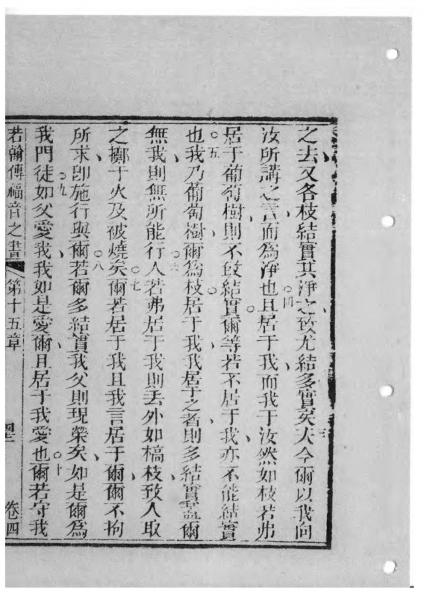 之去又各枝結實其淨之致尤結多實矣○三夫今爾以我向
汝所講之言而為淨也○四且居于我而我于汝然如枝若弗
居于葡萄樹則不能結實爾等若不居于我亦不能結實
○五也我乃葡萄樹爾為枝居于我我居于之者則多結實葢爾
無我則無所能行○六人若弗居于我則丟外如槁枝致人取
之擲于火及被燒矣○七爾若居于我且我言居于爾爾不拘
所求卽施行與爾○八若爾多結實我父則現榮矣如是爾為
我門徒○九如父愛我我如是愛爾且居于我愛也○十爾若守我
若翰傳福音之書 第十五章 卷四